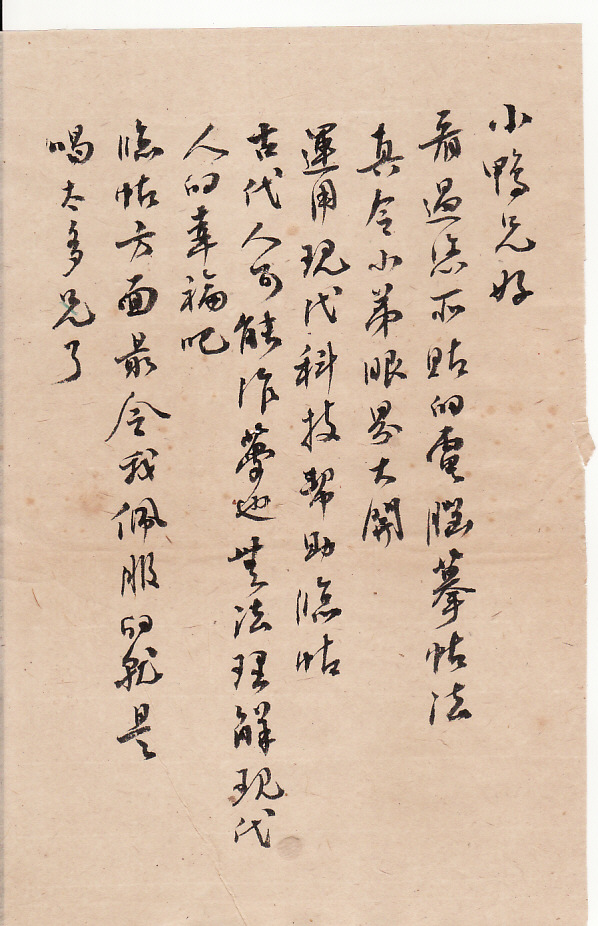 小鴨兄好
看過您所貼的電腦摹帖法
真令小弟眼界大開
運用現代科技幫助臨帖
古代人可能作夢也無法理解現代
人的幸福吧
臨帖方面最令我佩服的就是
喝太多兄了